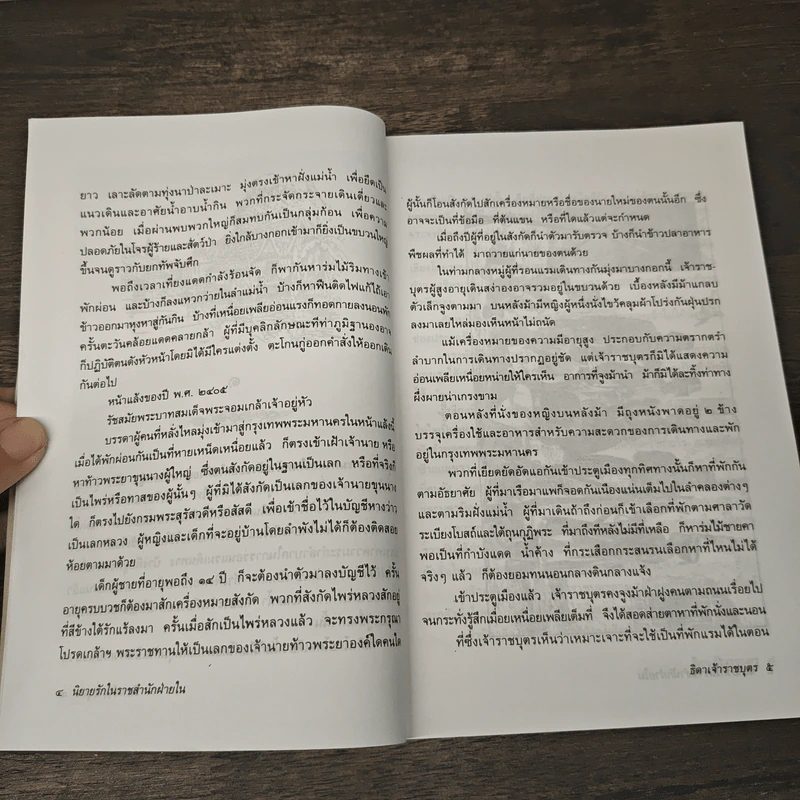 ยาว เลาะลัดตามทุ่งนาป่าละเมาะ มุ่งตรงเข้าหาฝั่งแม่น้ำ เพื่อยึดเป็น
แนวเดินและอาศัยน้ำอาบน้ำกิน พวกที่กระจัดกระจายเดินเดี่ยวและ
พวกน้อย เมื่อผ่านพบพวกใหญ่ก็สมทบกันเป็นกลุ่มก้อน เพื่อความ
ปลอดภัยในโจรผู้ร้ายและสัตว์ป่า ยิ่งใกล้บางกอกเข้ามาก็ยิ่งเป็นขบวนใหญ่
ขึ้นจนดูราวกับยกทัพจับศึก
พอถึงเวลาเที่ยงแดดกำลังร้อนจัด ก็พากันหาร่มไม้ริมทางเข้า
พักผ่อน และบ้างก็ลงแหวกว่ายในลำแม่น้ำ บ้างก็หาฟืนติดไฟแก้ไถ้เอา
ข้าวออกมาหุงหาสู่กันกิน บ้างที่เหนื่อยเพลียอ่อนแรงก็ทอดกายลงนอนพัก
ครั้นตะวันคล้อยแดดคลายกล้า ผู้ที่มีบุคลิกลักษณะทีท่าภูมิฐานองอาจ
ก็ปฏิบัติตนดังหัวหน้าโดยมิได้มีใครแต่งตั้ง ตะโกนกู่ออกคำสั่งให้ออกเดิน
กันต่อไป
หน้าแล้งของปี พ.ศ. ๒๔๐๕
รัชสมัยพระบาทสมเด็จพระจอมเกล้าเจ้าอยู่หัว
บรรดาผู้คนที่หลั่งไหลมุ่งเข้ามาสู่กรุงเทพพระมหานครในหน้าแล้งนี้
เมื่อได้พักผ่อนกันเป็นที่หายเหน็ดเหนื่อยแล้ว ก็ตรงเข้าเฝ้าเจ้านาย หรือ
หาท้าวพระยาขุนนางผู้ใหญ่ ซึ่งตนสังกัดอยู่ในฐานะเป็นเลก หรือที่จริงก็
เป็นไพร่หรือทาสของผู้นั้นๆ ผู้ที่มิได้สังกัดเป็นเลกของเจ้านายขุนนาง
ใด ก็ตรงไปยังกรมพระสุรัสวดีหรือสัสดี เพื่อเข้าชื่อไว้ในบัญชีหางว่าว
เป็นเลกหลวง ผู้หญิงและเด็กที่จะอยู่บ้านโดยลำพังไม่ได้ก็ต้องติดสอย
ห้อยตามมาด้วย
เด็กผู้ชายที่อายุพอถึง ๑๔ ปี ก็จะต้องนำตัวมาลงบัญชีไว้ ครั้น
อายุครบบวชก็ต้องมาสักเครื่องหมายสังกัด พวกที่สังกัดไพร่หลวงสักอยู่
ที่สีข้างใต้รักแร้ลงมา ครั้นเมื่อสักเป็นไพร่หลวงแล้ว จะทรงพระกรุณา
โปรดเกล้าฯ พระราชทานให้เป็นเลกของเจ้านายท้าวพระยาองค์ใดคนใด
๔ นิยายรักในราชสำนักฝ่ายใน
ผู้นั้นก็โอนสังกัดไปสักเครื่องหมายหรือชื่อของนายใหม่ของตนนั้นอีก ซึ่ง
อาจจะเป็นที่ข้อมือ ที่ต้นแขน หรือที่ใดแล้วแต่จะกำหนด
เมื่อถึงปีผู้ที่อยู่ในสังกัดก็นำตัวมารับตรวจ บ้างก็นำข้าวปลาอาหาร
พืชผลที่ทำได้ มาถวายแก่นายของตนด้วย
ในท่ามกลางหมู่ผู้ที่รอนแรมเดินทางกันมุ่งมาบางกอกนี้ เจ้าราช-
บุตรผู้สูงอายุเดินสง่าองอาจรวมอยู่ในขบวนด้วย เบื้องหลังมีม้าแกลบ
ตัวเล็กจูงตามมา บนหลังม้ามีหญิงผู้หนึ่งนั่งไขว้คลุมผ้าโปร่งกันฝุ่นปรก
ลงมาเลยไหล่มองเห็นหน้าไม่ถนัด
แม้เครื่องหมายของความมีอายุสูง ประกอบกับความตรากตรำ
ลำบากในการเดินทางปรากฏอยู่ชัด แต่เจ้าราชบุตรก็มิได้แสดงความ
อ่อนเพลียเหนื่อยหน่ายให้ใครเห็น อาการที่จูงม้านำ ม้าก็มิได้ละทิ้งท่าทาง
ผึ่งผายน่าเกรงขาม
ตอนหลังที่นั่งของหญิงบนหลังม้า มีถุงหนังพาดอยู่ ๒ ข้าง
บรรจุเครื่องใช้และอาหารสำหรับความสะดวกของการเดินทางและพัก
อยู่ในกรุงเทพพระมหานคร
พวกที่เยียดยัดอัดแอกันเข้าประตูเมืองทุกทิศทางนั้นก็หาที่พักกัน
ตามอัธยาศัย ผู้ที่มาเรือมาแพก็จอดกันเนืองแน่นเต็มไปในลำคลองต่างๆ
และตามริมฝั่งแม่น้ำ ผู้ที่มาเดินถ้าถึงก่อนก็เข้าเลือกที่พักตามศาลาวัด
ระเบียงโบสถ์และใต้ถุนกุฏิพระ ที่มาถึงทีหลังไม่มีที่เหลือ ก็หาร่มไม้ชายคา
พอเป็นที่กำบังแดด น้ำค้าง ที่กระเสือกกระสนรนเลือกหาที่ไหนไม่ได้
จริงๆ แล้ว ก็ต้องยอมทนนอนกลางดินกลางแจ้ง
เข้าประตูเมืองแล้ว เจ้าราชบุตรคงจูงม้าฝ่าฝูงคนตามถนนเรื่อยไป
จนกระทั่งรู้สึกเมื่อยเหนื่อยเพลียเต็มที่ จึงได้สอดส่ายตาหาที่พักนั่งและนอน
ที่ซึ่งเจ้าราชบุตรเห็นว่าเหมาะเจาะที่จะใช้เป็นที่พักแรมได้ในตอน
ธิดาเจ้าราชบุตร ๕